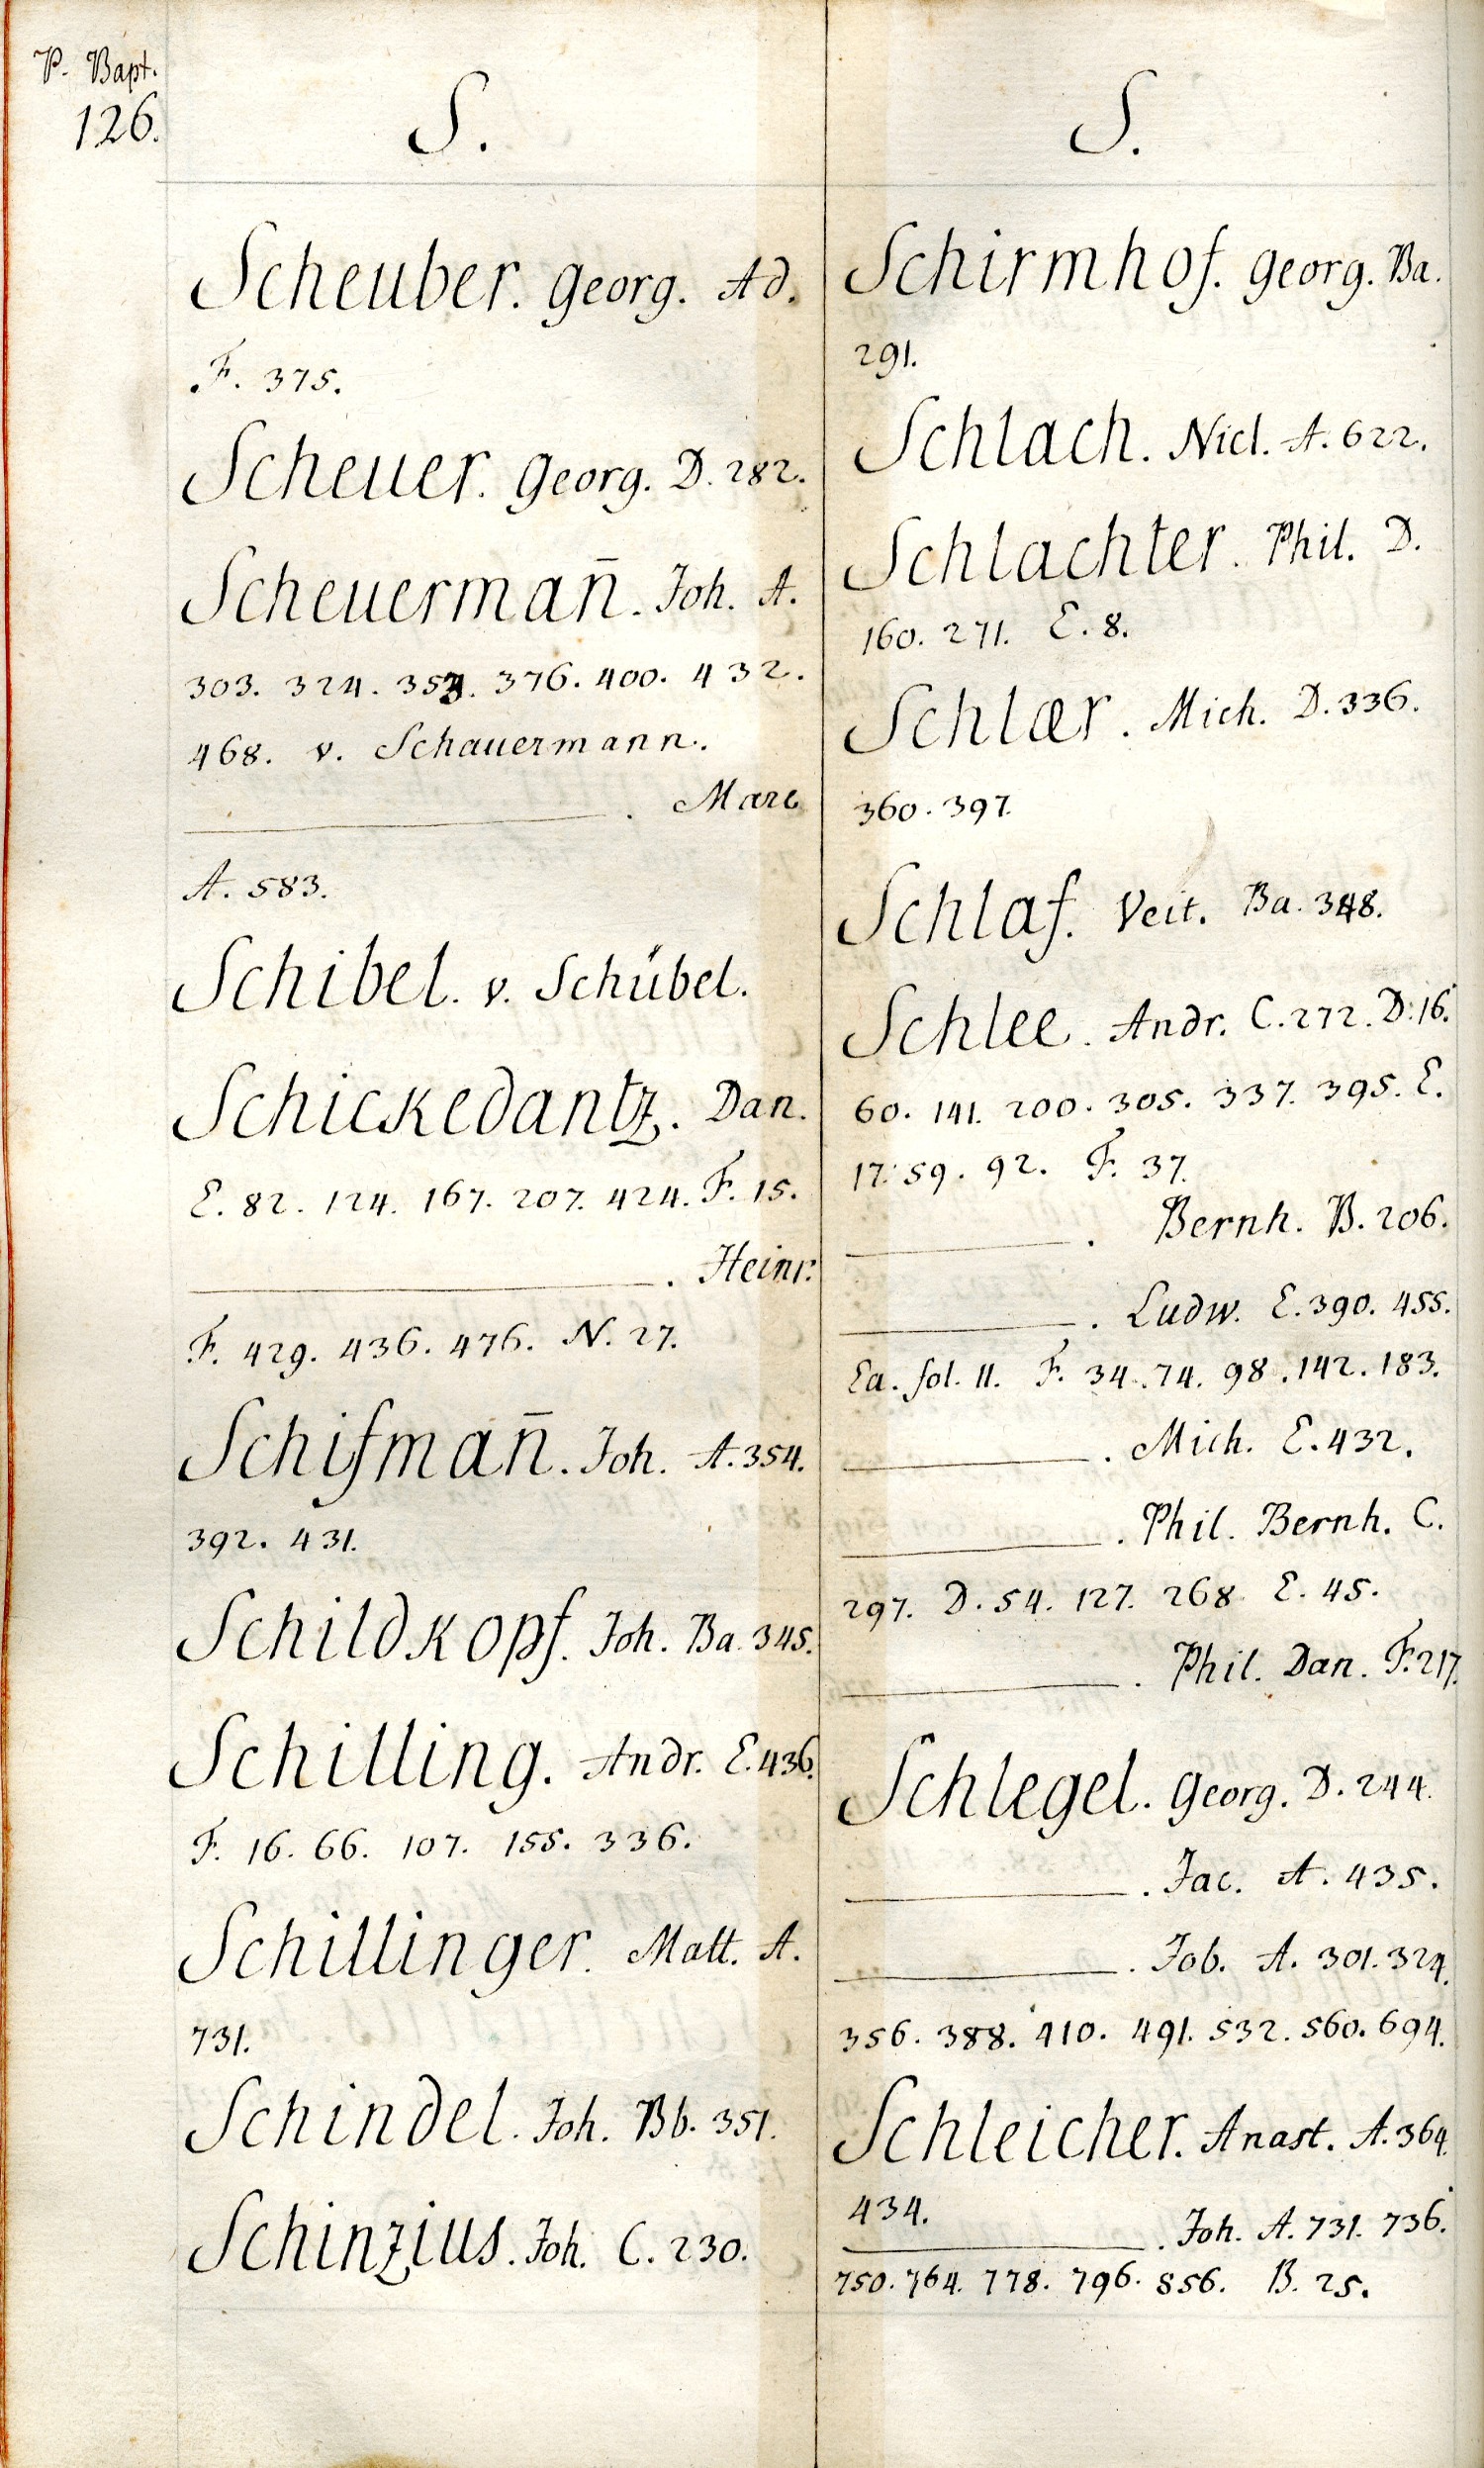 P. Bapt.
126.
S.
Scheuber. Georg. Ad.
F. 375.
Scheuer. Georg. D. 282.
Scheuermañ. Joh. A.
303. 324. 353. 376. 400. 432.
468. v. Schauermann.
. Marc
A. 583.
Schibel. v. Schübel.
Schickedantz. Dan.
E. 82. 124. 167. 207. 424. F. 15.
. Heinr.
F. 429. 436. 476. N. 27.
Schifmañ. Joh. A. 354.
392. 431.
Schildkopf. Joh. Ba. 345.
Schilling. Andr. E. 436.
F. 16. 66. 107. 155. 336.
Schillinger. Matt. A.
731.
Schindel. Joh. Bb. 351.
Schinzius. Joh. C. 230.
S.
Schirmhof. Georg. Ba.
291.
Schlach. Nicl. A. 622.
Schlachter. Phil. D.
160. 271. E. 8.
Schlær. Mich. D. 336.
360. 397.
Schlaf. Veit. Ba. 348.
Schlee. Andr. C. 272. D. 16.
60. 141. 200. 305. 337. 395. E.
17. 59. 92. F. 37.
. Bernh. B. 206.
. Ludw. E. 390. 455.
Ea. fol. 11. F. 34. 74. 98. 142. 183.
. Mich. E. 432.
. Phil. Bernh. C.
297. D. 54. 127. 268. E. 45.
. Phil. Dan. F. 217.
Schlegel. Georg. D. 244.
. Jac. A. 435.
. Job. A. 301. 324.
356. 388. 410. 491. 532. 560. 694.
Schleicher. Anast. A. 364.
434.
. Joh. A. 731. 736.
750. 764. 778. 796. 856. B. 25.